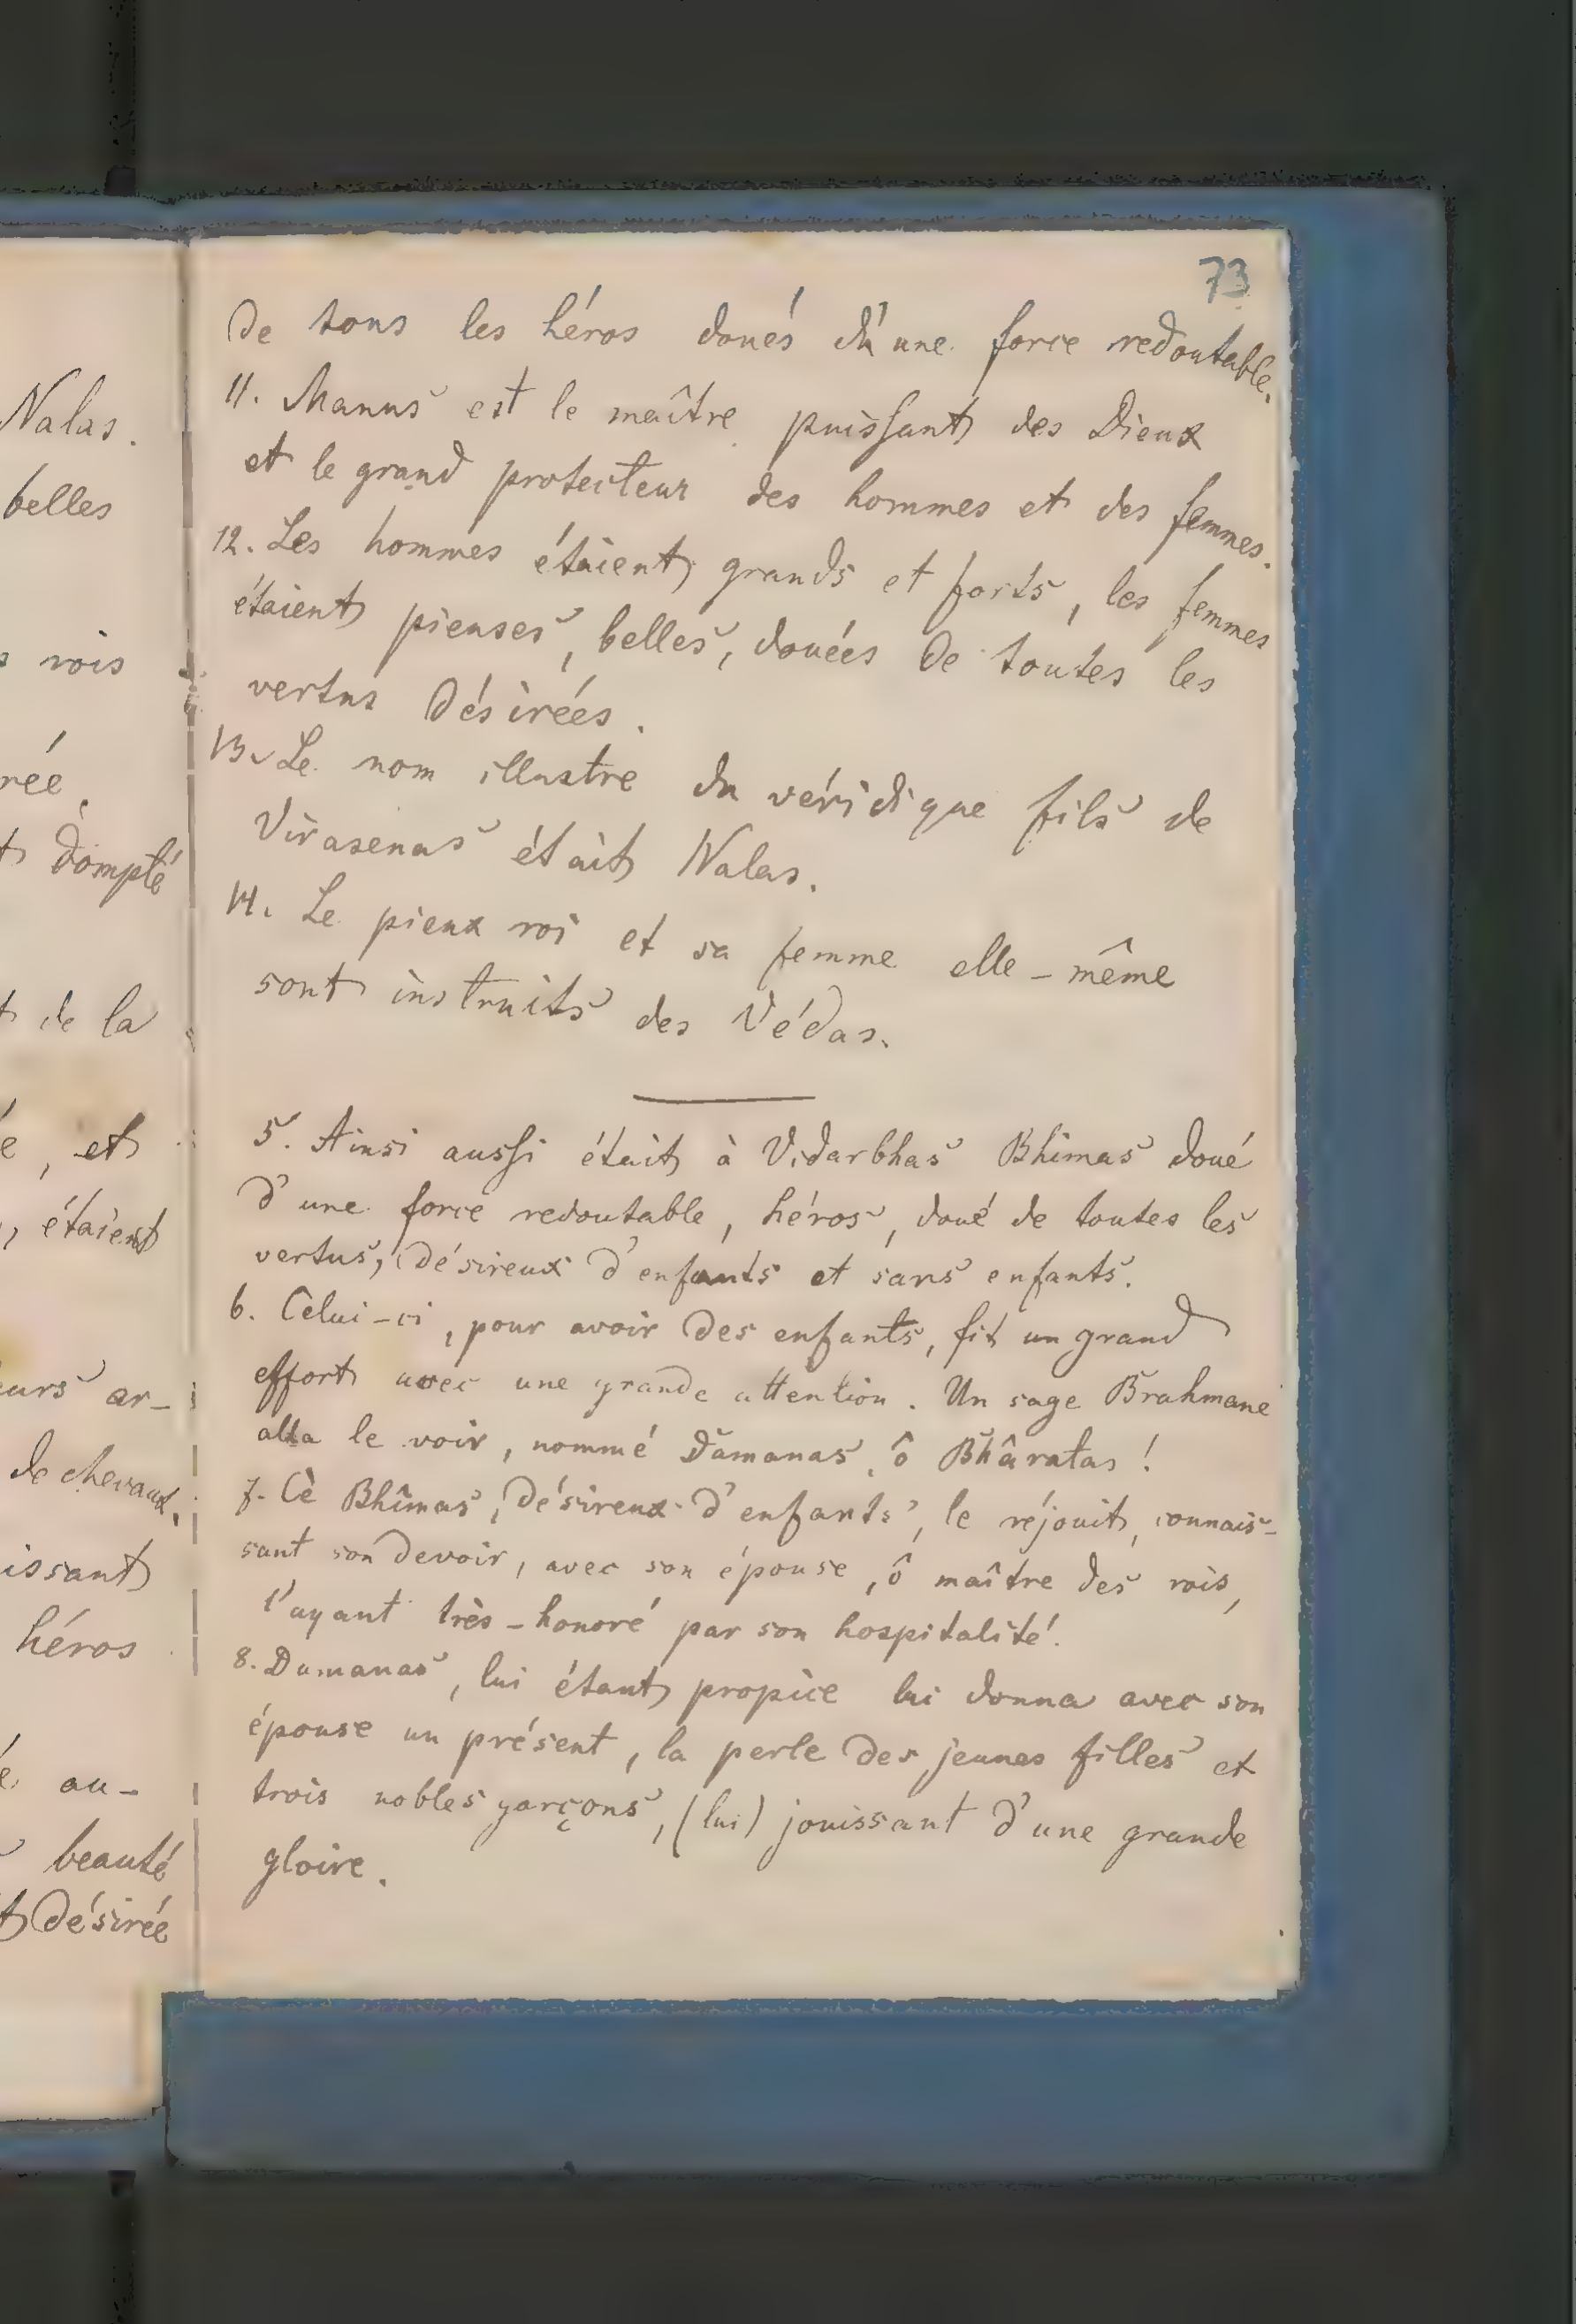 Nalas.
belles
rois
rée,
dompté
de la
, et
, étaient
eurs ar-
de chevaux,
issant
héros
au-
beauté
désirée
73
de tous les héros doués d'une force redoutable.
11. Manus est le maître puissant des Dieux
et le grand protecteur des hommes et des femmes.
12. Les hommes étaient grands et forts, les femmes
étaient pieuses, belles, douées de toutes les
vertus désirées.
13. Le nom illustre du véridique fils de
Virasenas était Nalas.
14. Le pieux roi et sa femme elle-même
sont instruits des Védas.
5. Ainsi aussi était à Vidarbhas Bhîmas doué
d'une force redoutable, héros, doué de toutes les
vertus, désireux d'enfants et sans enfants.
6. Celui-ci, pour avoir des enfants, fit un grand
effort avec une grande attention. Un sage Brahmane
alla le voir, nommé Damanas, ô Bhâratas !
7. Ce Bhîmas, désireux d'enfants, le réjouit, connais-
sant son devoir, avec son épouse, ô maître des rois,
l'ayant très-honoré par son hospitalité.
8. Damanas, lui étant propice lui donna avec son
épouse un présent, la perle des jeunes filles et
trois nobles garçons, (lui) jouissant d'une grande
gloire.